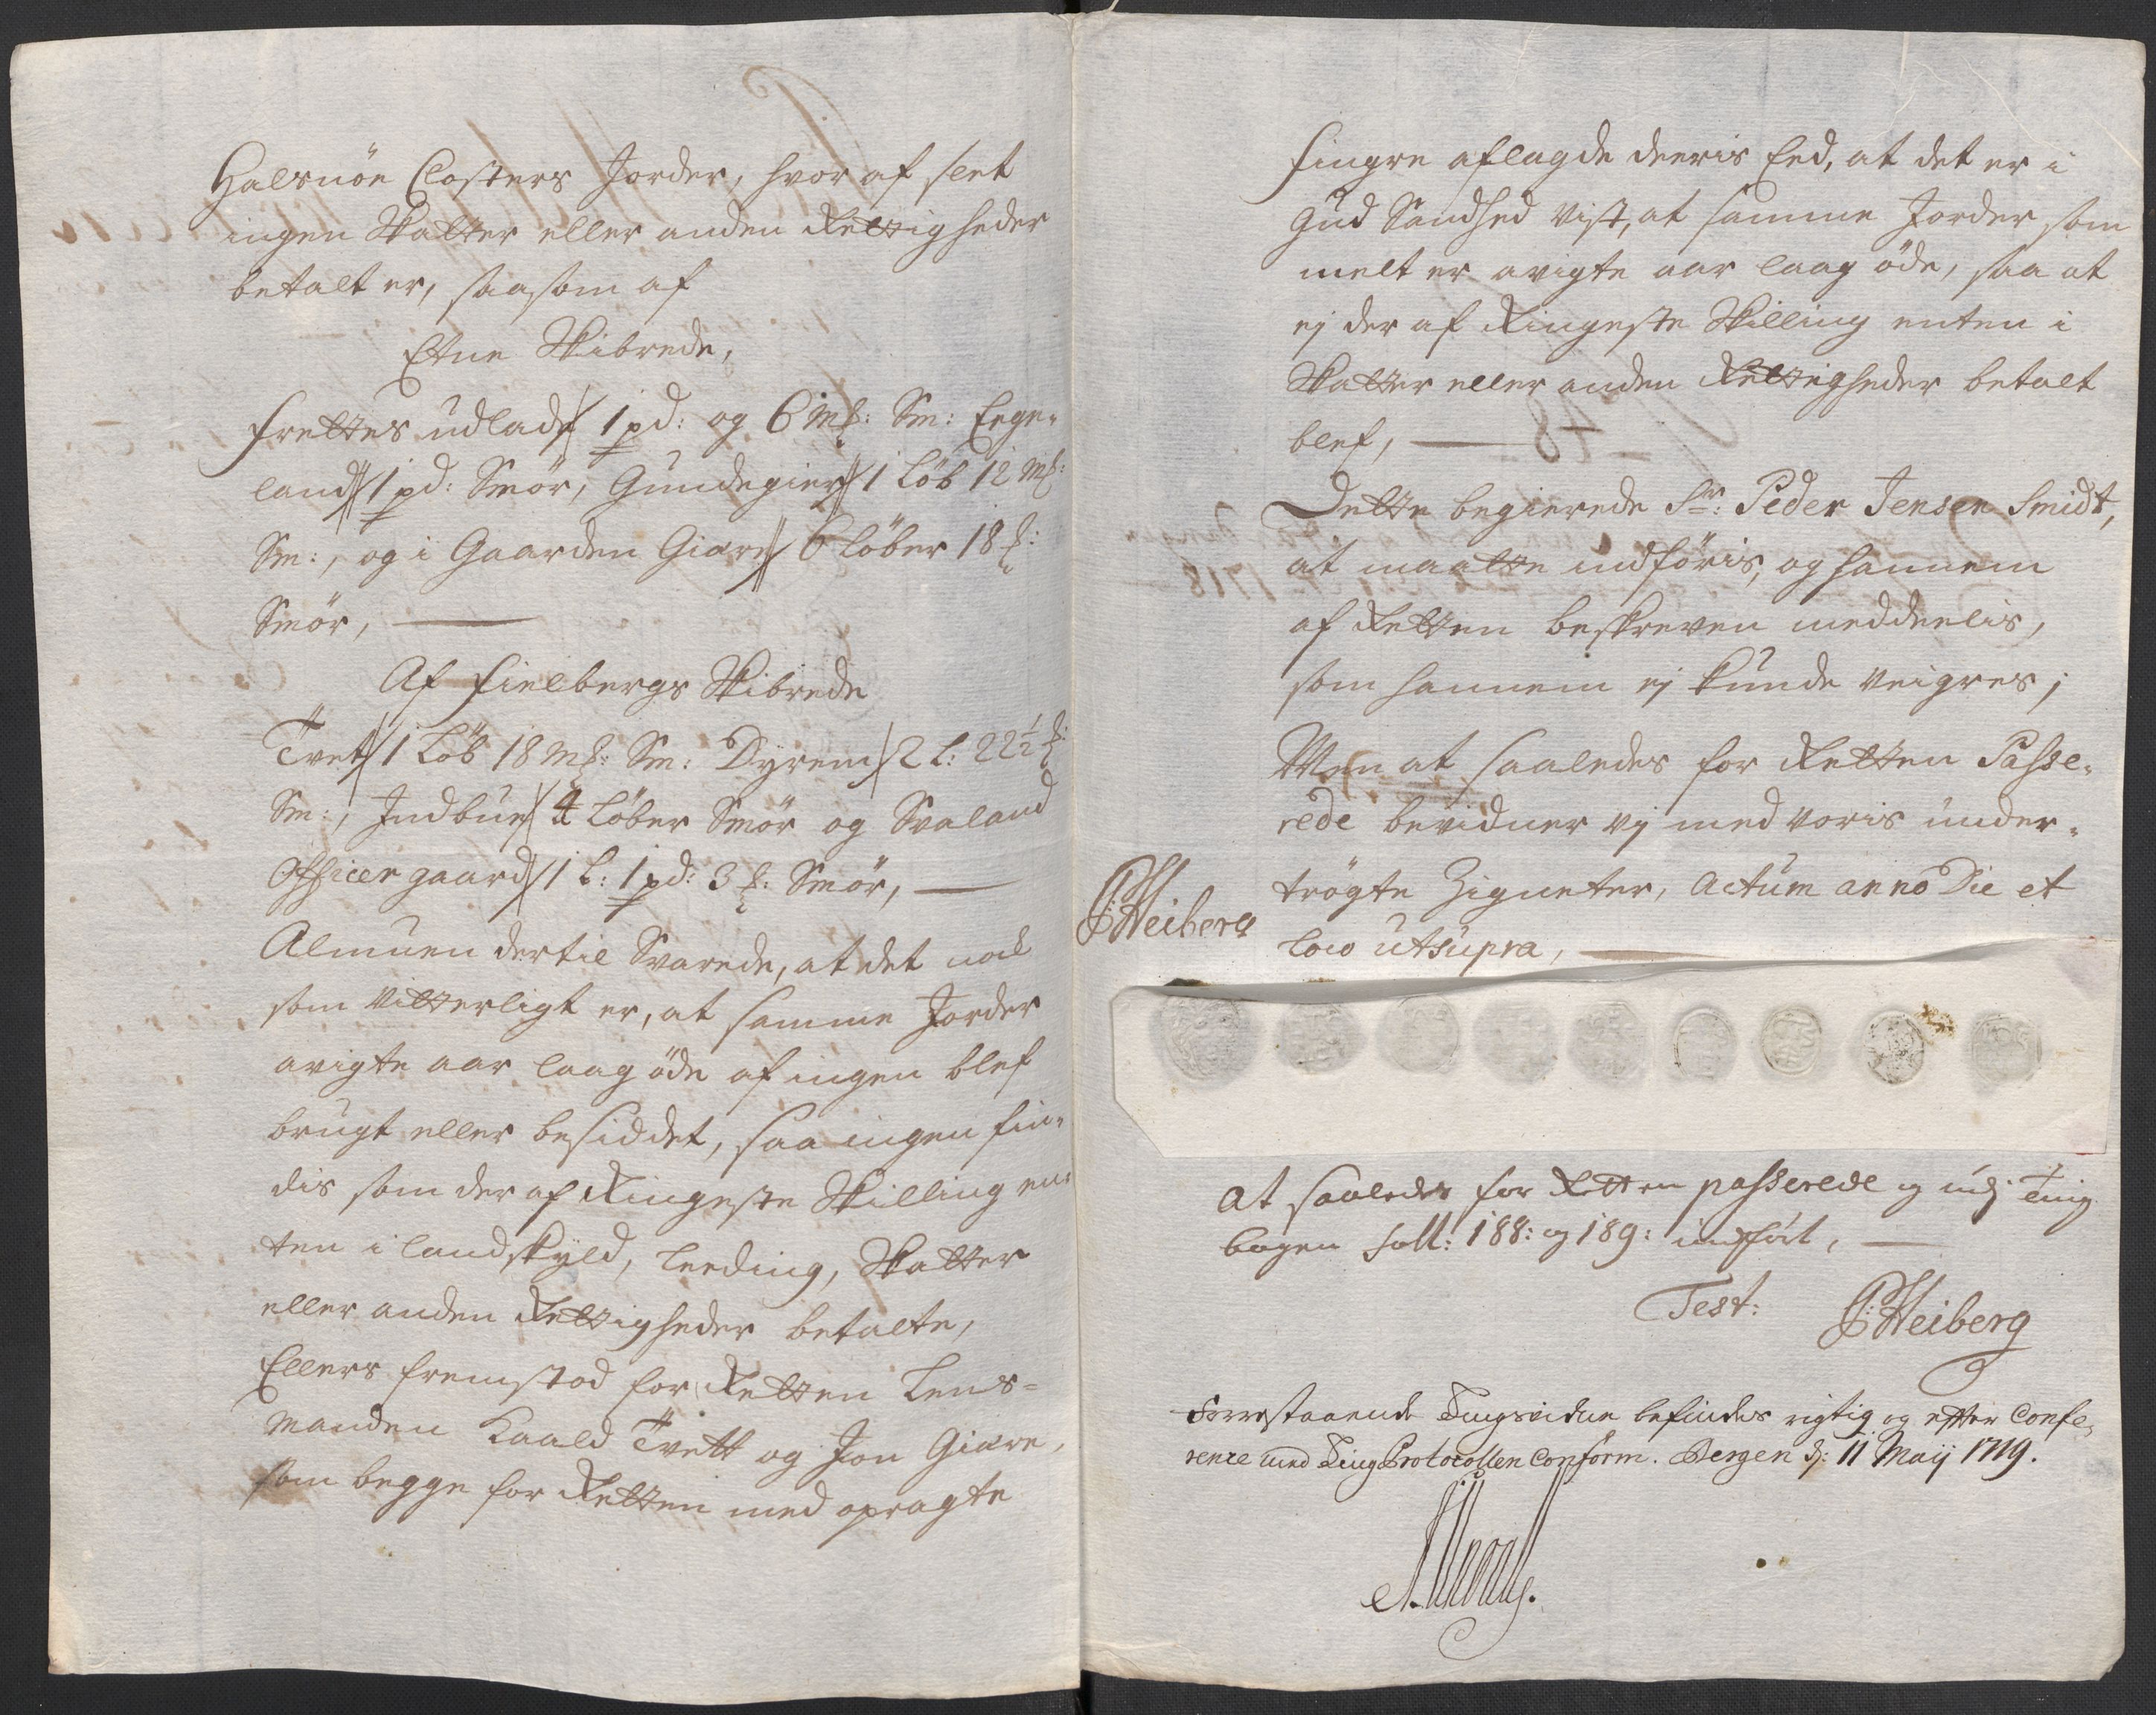 Halsnöe Closters Jorder, hvor af slet
ingen Skatter eller anden Rettigheder
betalt er, saasom af
Etne Skibrede,
Frettes udlad// 1 pd: og 6 mk: Sm: Ege-
land// 1 pd: Smör, Gundegier// 1 Löb 12 mk:
Sm:, og i Gaarden Giære// 6 Löber 18 k:
Smör,
Af Fielbergs Skibrede
Tvet// 1 Löb 18 mk: Sm: Dyrem// 2 L: 22½ k:
Sm:, Indbue// 4 Löber Smör og Svaland
Officer gaard// 1 L: 1 pd: 3 k: Smör,
Almuen dertil Svarede, at det nok
som vitterligt er, at samme Jorder
avigte aar laag öde af ingen blef
brugt eller besiddet, saa ingen fin-
dis som der af Ringeste Skilling en-
ten i landskyld, leeding, Skatter
eller anden Rettigheder betalte,
Ellers fremstod for Retten Lens-
manden Kaald Tvett og Jon Giære,
som begge for Retten med opragte
fingre aflagde deeris Eed, at det er i
Gud Sandhed vist, at samme Jorder som
melt er avigte aar laag öde, saa at
ej der af Ringeste Skilling enten i
Skatter eller anden Rettigheder betalt
blef,
Dette begierede Sr: Peder Jensen Smidt,
at maatte indföris, og hannem
af Retten beskreven meddeelis,
som hannem ej kunde veigres;
Men at saaledes for Retten Passe-
rede bevidner vj med voris under-
trögte Zigneter, Actum anno Die et
loco utsupra,
P: Heiberg
At saaledes for Retten passerede og udj Ting
bogen foll: 188: og 189: indfört,
Test: P: Heiberg
Forrestaaende Tingsvidne befindes rigtig og efter Confe-
rence med Ting Protocollen Conform. Bergen d: 11 Maij 1719.